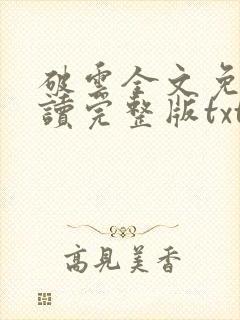 破雲全文免
讀完整版txt
高見美香